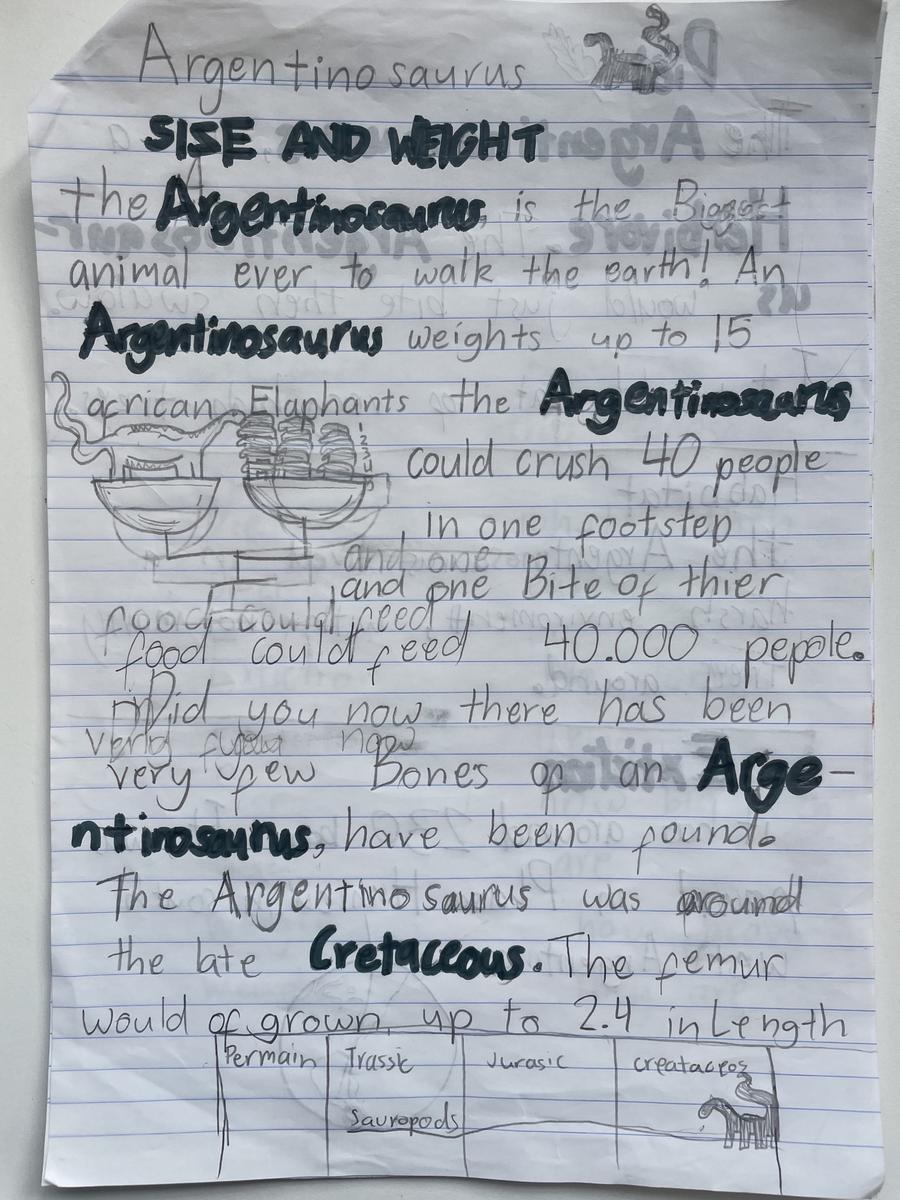 Argentinosaurus
SISE AND WEIGHT
the Argentinosaurus, is the Biggest
animal ever to walk the earth! An
Argentinosaurus weights up to 15
african Elaphants the Argentinosaurus
could crush 40 people
, in one footstep
and one
,and one Bite of thier
food could feed
food could feed 40.000 pepole.
Did you now there has been
very few now
very few Bones of an Arge-
ntinosaurus, have been found.
The Argentinosaurus was around
the late Cretaceous. The femur
would of grown up to 2.4 in Length
Permain Trassic Jurasic creataceos
Sauropods